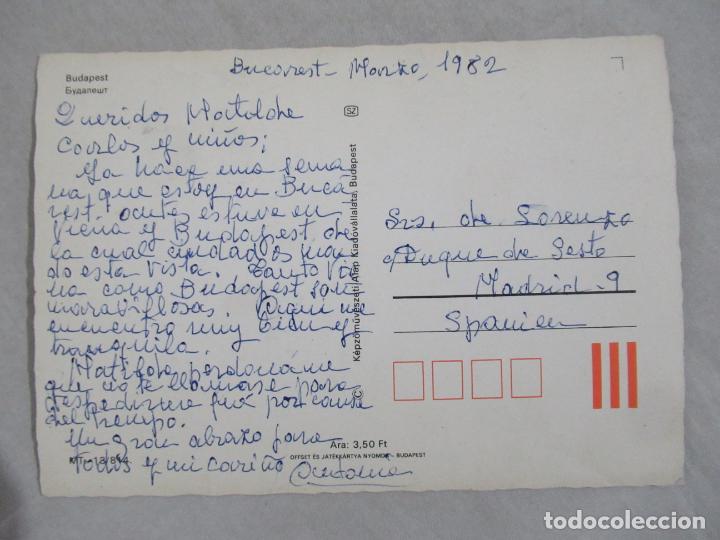 Bucarest - Marzo, 1982
Budapest
Будапешт
Queridos Matilde
Carlos y niños;
Ya hace una sema
na que estoy en Buca
rest. antes estuve en
Viena y Budapest de
la cual ciudad os man
do esta vista. Tanto Vie
na como Budapest son
maravillosas. Aqui me
encuentro muy bien y
tranquila.
Matilde perdoname
que no te llamase para
despedirme fué por causa
del tiempo.
Un gran abrazo para
todos y mi cariño Antonia
MT-13/814
SZ
© Képzőművészeti Alap Kiadóvállalata, Budapest
Srs. de Lorenzo
c/Duque de Sesto
Madrid-9
Spanien
Ara: 3,50 Ft
OFFSET ÉS JÁTÉKKÁRTYA NYOMDA, BUDAPEST
todocoleccion.net